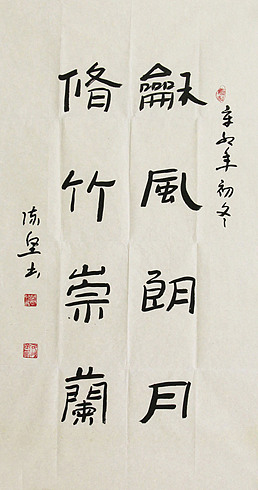 辛卯年初冬
龢風朗月
脩竹崇蘭
陈坚书